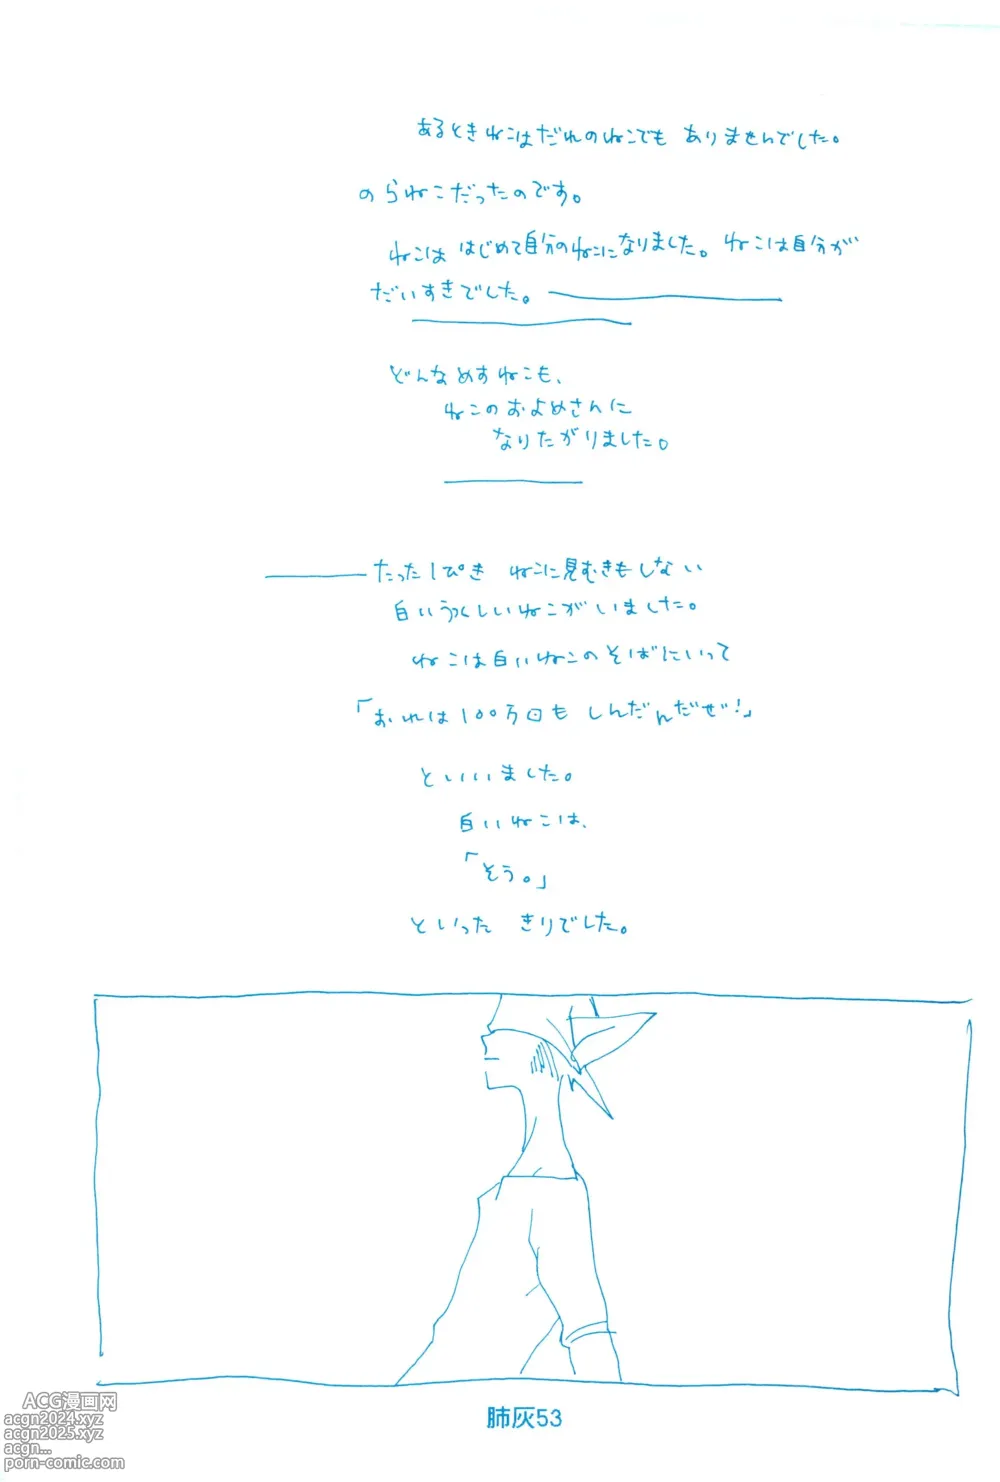 あるときねこはだれのねこでも ありませんでした。
のらねこだったのです。
ねこは はじめて自分のねこになりました。ねこは自分が
だいすきでした。
どんなめすねこも、
ねこのおよめさんに
なりたがりました。
たった1ぴき ねこに見むきもしない
白いうつくしいねこがいました。
ねこは白いねこのそばにいって
「おれは100万回も しんだんだぜ!」
といいました。
白いねこは、
「そう。」
といった きりでした。
肺灰53
ACG漫画网
acgn2024.xyz
acgn2025.xyz
acgn...
porn-comic.com